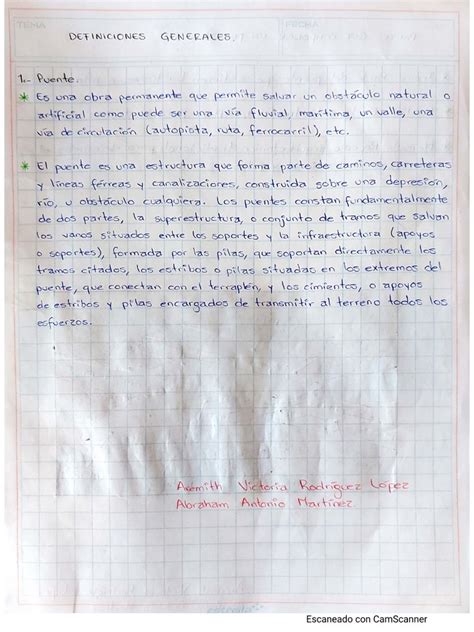 TEMA
FECHA
DEFINICIONES GENERALES.
1.- Puente.
* Es una obra permanente que permite salvar un obstáculo natural o
artificial como puede ser una vía fluvial, marítima, un valle, una
vía de circulación (autopista, ruta, ferrocarril), etc.
* El puente es una estructura que forma parte de caminos, carreteras
y líneas férreas y canalizaciones, construida sobre una depresión,
río, u obstáculo cualquiera. Los puentes constan fundamentalmente
de dos partes, la superestructura, o conjunto de tramos que salvan
los vanos situados entre los soportes y la infraestructura (apoyos
o soportes), formada por las pilas, que soportan directamente los
tramos citados, los estribos o pilas situadas en los extremos del
puente, que conectan con el terraplén, y los cimientos, o apoyos
de estribos y pilas encargados de transmitir al terreno todos los
esfuerzos.
Victoria Rodríguez López
Abraham Antonio Martínez.
Escaneado con CamScanner